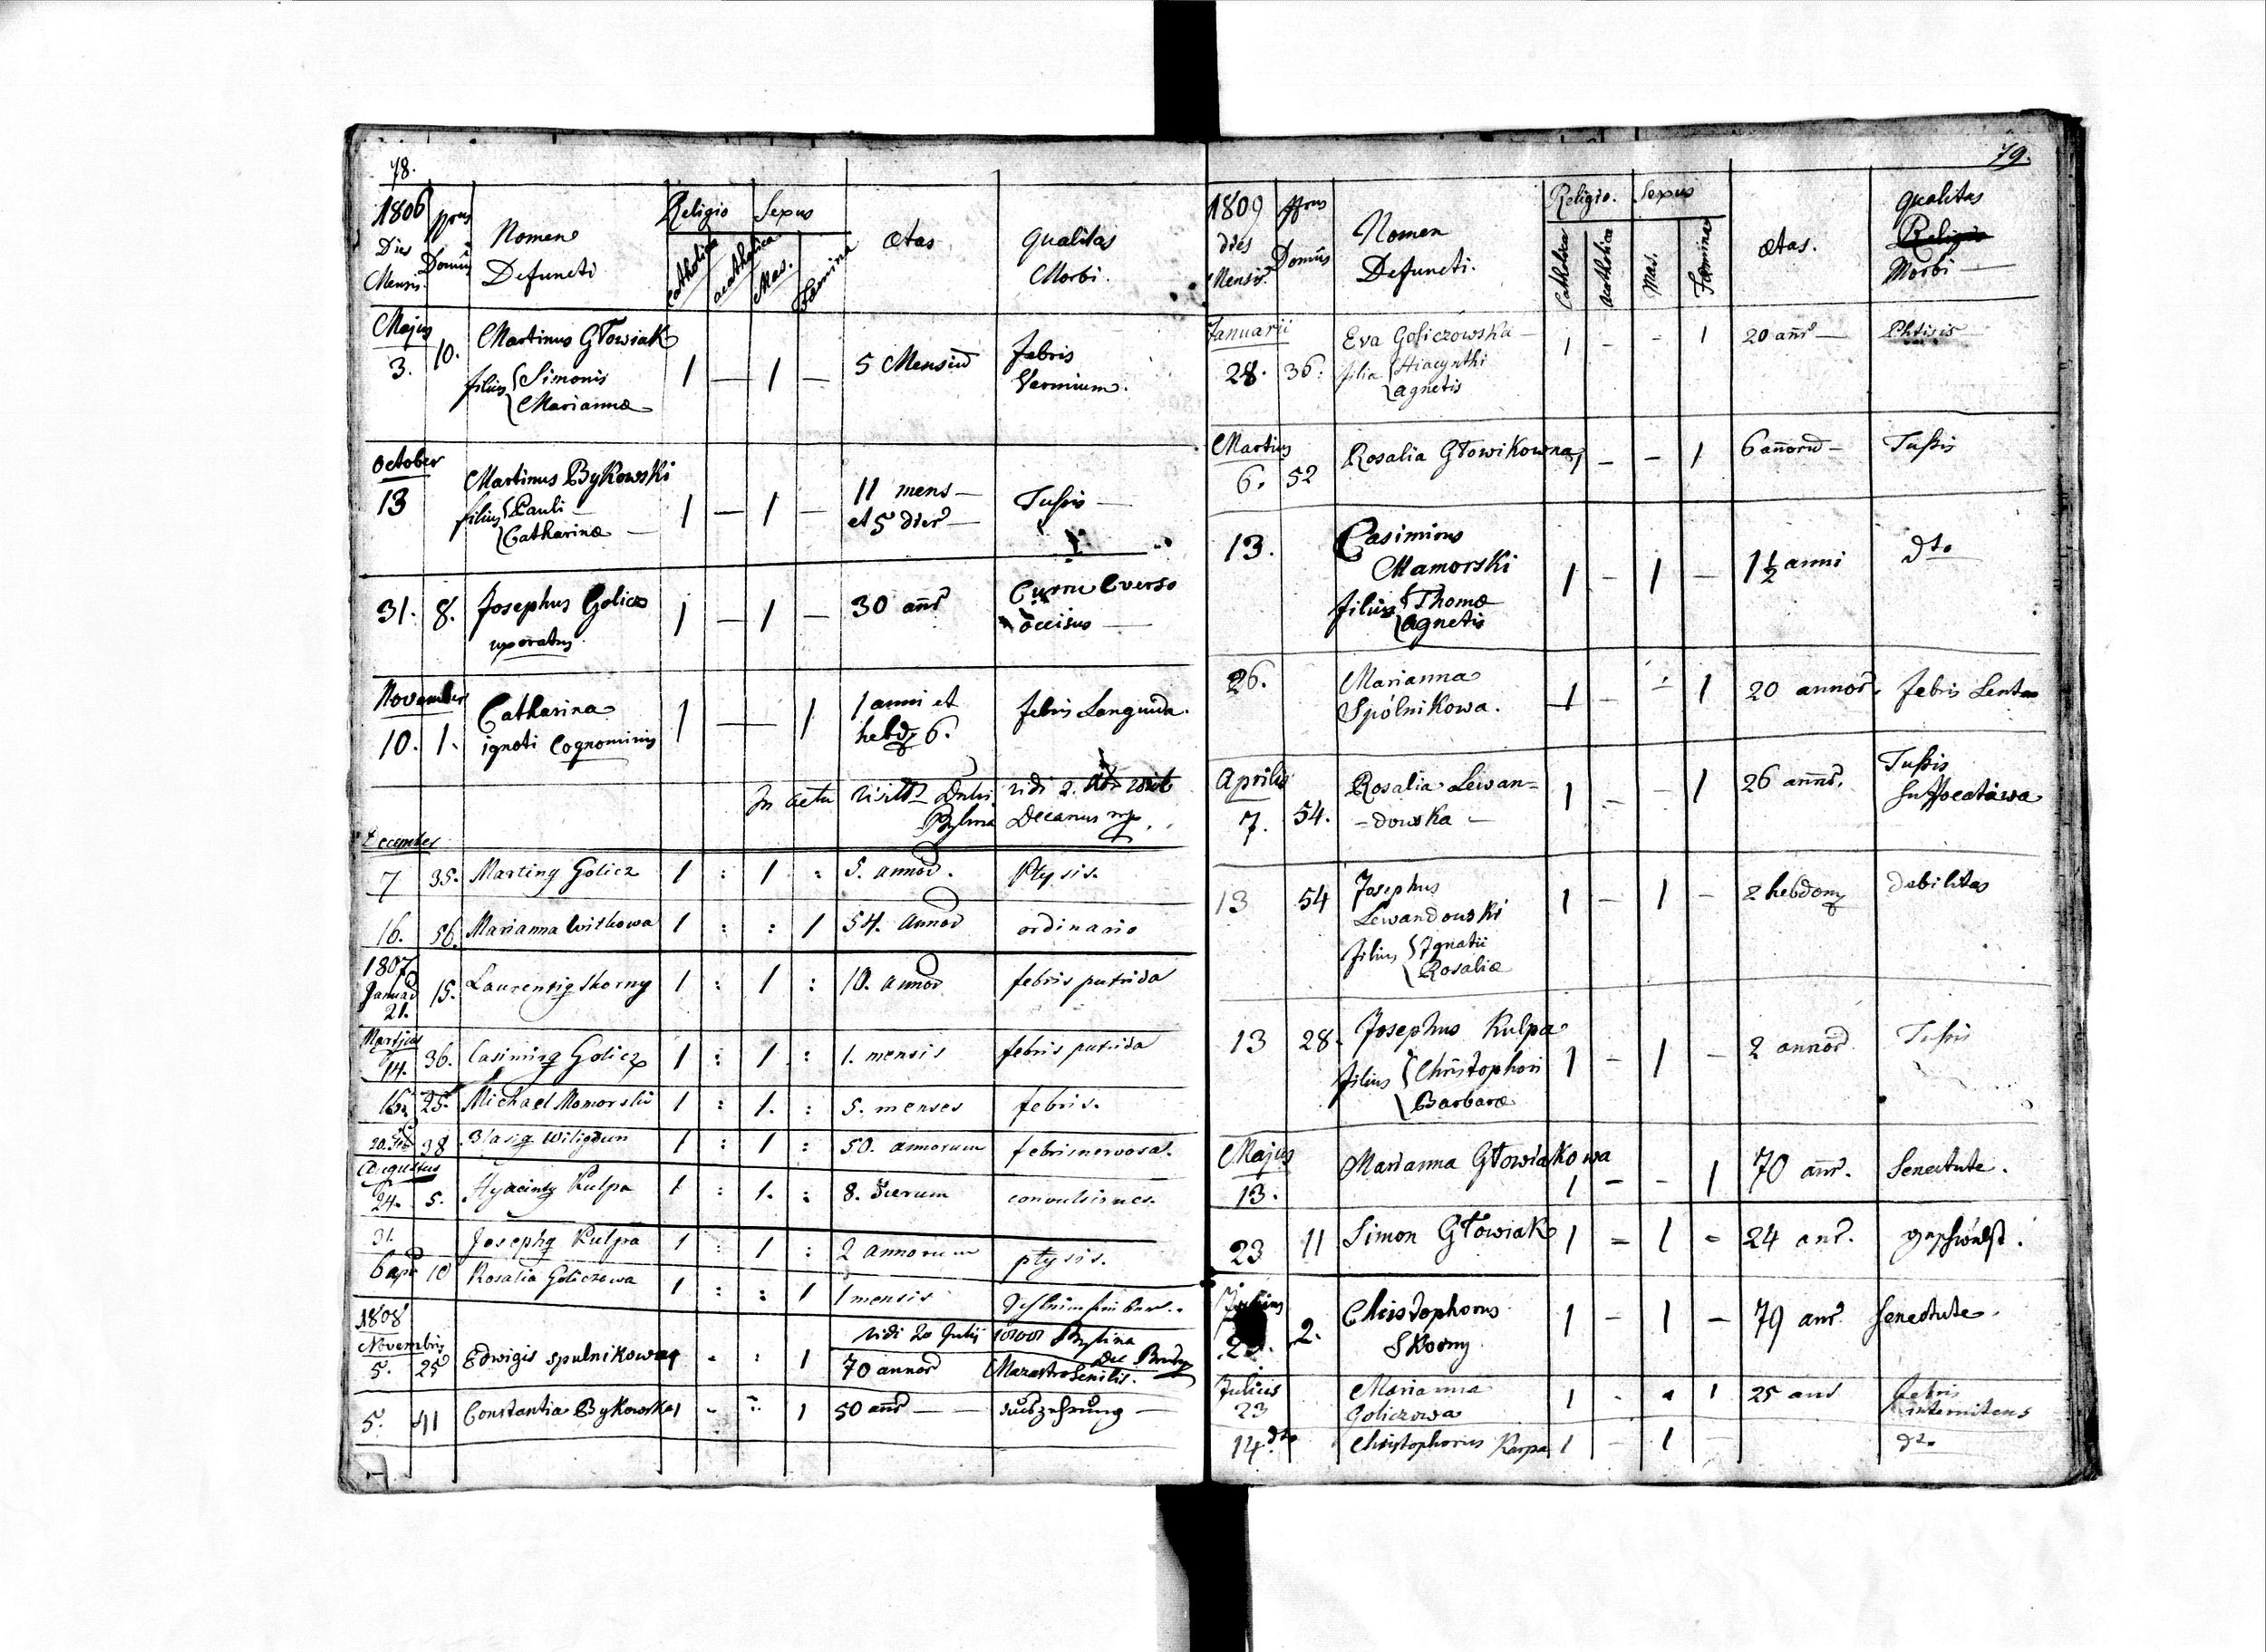 78.
1806 Nrus Nomen Religio Sexus Ætas Qualitas
Dies Domûs Defuncti Catholica acatholica Mas. Fæmina Morbi.
Mensis.
Majus
3. 10. Martinus Głowiak 1 — 1 — 5 Mensiũ febris
filius { Simonis Vermium.
{ Mariannæ
October
13 Martinus Bykowski 1 — 1 — 11 mens — Tußis —
filius { Pauli — et 5 dier —
{ Catharinæ —
31. 8. Josephus Golicz 1 — 1 — 30 añr Curru Everso
uxoratus. occisus —
November
10. 1. Catharina 1 — — 1 1 anni et febris Languida.
ignoti Cognominis hebd. 6.
In actu
Decanus mp.
December
7 35. Marting Golicz 1 : 1 : 5. annor. Ptysis.
16. 56. Marianna Witkowa 1 : : 1 54. Annor ordinario
1807
Januar
21. 15. Laurentig Skorny 1 : 1 : 10. annor febris putrida
Martjus
14. 36. Casimirg Golicz 1 : 1 : 1. mensis febris putrida
16. 25. Michael Momorski 1 : 1. : 5. menses febris.
38 Blasig Wiligdun 1 : 1 : 50. annorum febris nervosa.
Augustus
24. 5. Hyacintg Kulpa 1 : 1. : 8. dierum convulsiones.
31. Josephg Kulpa 1 : 1 : 2 annorum ptysis.
6 apr 10 Rosalia Goliczowa 1 : : 1 1 mensis
1808
Novembris vidi 20 Julij Bylina
5. 25 Edwigis Spulnikowa 1 - : 1 70 annor Senilis.
5. 41 Constantia Bykowska 1 - : 1 50 añr — Auszehrung —
79.
1809 Nrus Nomen Religio. Sexus Ætas. Qualitas
dies Domûs Defuncti. Catholica Acatholica Mas. Fæmina Religio
Mensis. Morbi —
Januarii
28. 36. Eva Goliczowska — 1 - - 1 20 añr — Phtisis
filia { Hiacynthi
{ Agnetis
Martius
6. 52 Rosalia Głowikowna 1 — — 1 6 añorũ — Tußis
13. Casimirus 1 — 1 — 1 1/2 anni dto
Mamorski
filius { Thomæ
{ Agnetis
26. Marianna 1 — - 1 20 annor. febris Lenta
Spólnikowa.
Aprilis
7. 54. Rosalia Lewan= 1 — - 1 26 annr. Tußis
-dowska — Suffocativa
13 54 Josephus 1 — 1 — 2 hebdom debilitas
Lewandowski
filius { Ignatii
{ Rosaliæ
13 28. Josephus Kulpa 1 - 1 — 2 annor Tußis
filius { Christophori
{ Barbaræ
Majus
13. Marianna Głowiakowa 1 — - 1 70 añr. Senectute.
23 11 Simon Głowiak 1 = 1 = 24 anr. Geschwulst.
Julius
2. Christophorus 1 — 1 — 79 anr. Senectute.
Skorny
Julius
23 Marianna 1 - - 1 25 anr febris
Goliczowa intermitens
14 dto Christophorus Karpa 1 — 1 — dto